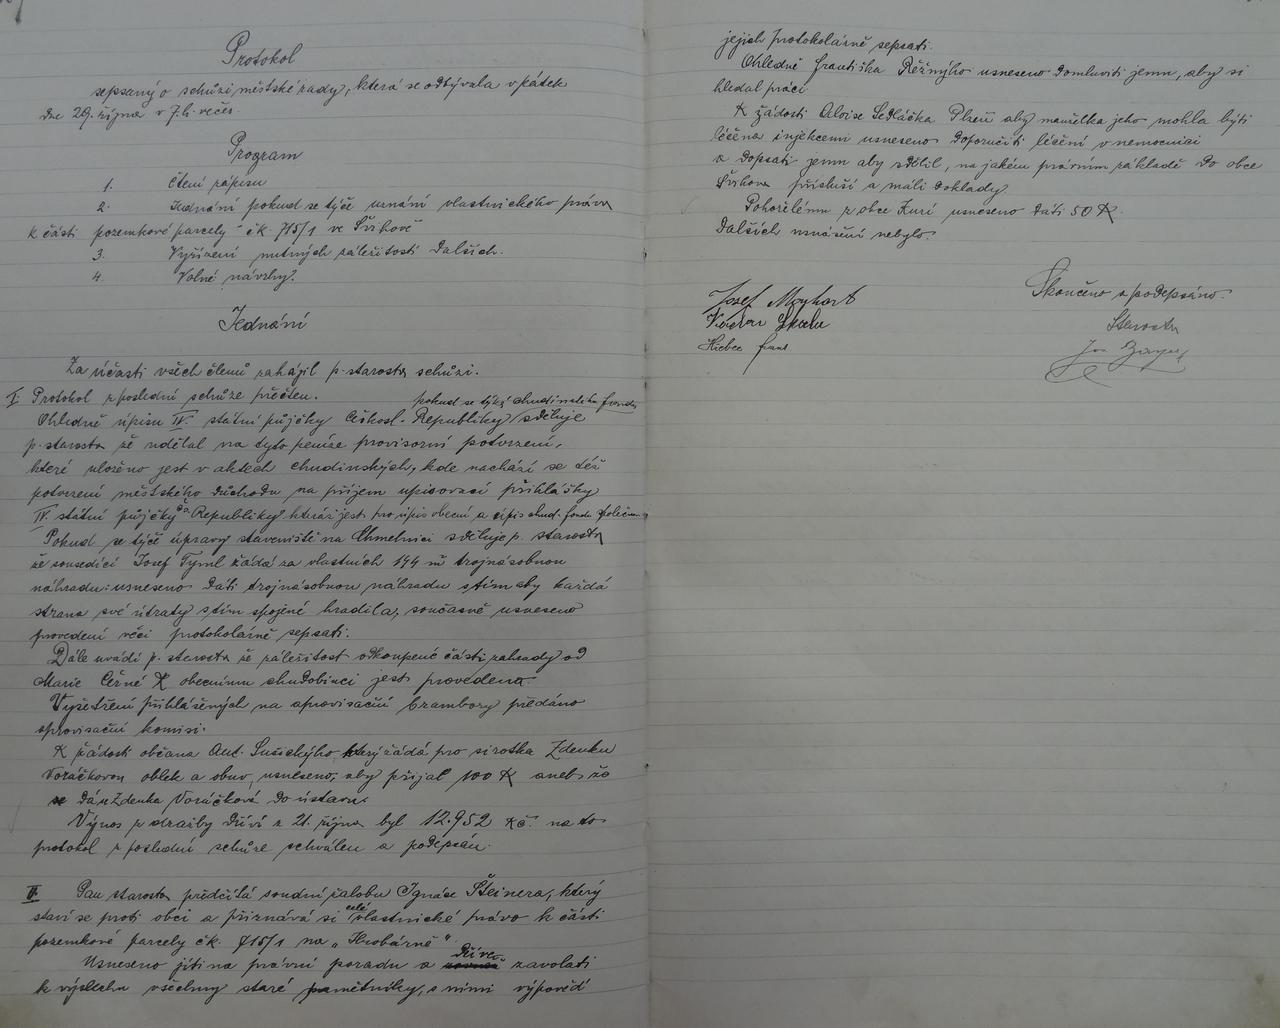 Protokol
sepsaný o schůzi městské rady, která se odbývala v pátek
dne 29. října v 7. h. večer.
Program
1. Čtení zápisu
2. Jednání pokud se týče uznání vlastnického práva
k části pozemkové parcely čk. 715/1 ve Švihově
3. Vyřízení nutných záležitostí dalších.
4. Volné návrhy.
Jednání
Za účasti všech členů zahájil p. starosta schůzi.
I. Protokol z poslední schůze přečten.
pokud se týká chudinského fondu
Ohledně úpisu IV. státní půjčky Českosl. Republiky sděluje
p. starosta že udělal na tyto peníze provisorní potvrzení,
které uloženo jest v aktech chudinských, kde nachází se též
potvrzení městského důchodu na příjem upisovací přihlášky
IV. státní půjčky čs. Republiky kteráž jest pro úpis obecní a úpis chud. fondu společná
Pokud se týče úpravy staveniště na Chmelnici sděluje p. starosta
že sousedící Josef Tyml žádá za vlastních 194 m² trojnásobnou
náhradu: usneseno dáti trojnásobnou náhradu s tím aby každá
strana své útraty s tím spojené hradila, současně usneseno
provedení věci protokolárně sepsati.
Dále uvádí p. starosta že záležitost odkoupené části zahrady od
Marie Černé k obecnímu chudobinci jest provedena.
Vyšetření přihlášených na aprovisační brambory předáno
aprovisační komisi.
K žádosti občana Ant. Sušickýho, který žádá pro sirotka Zdenku
Voráčkovou oblek a obuv, usneseno, aby přijal 100 K aneb že
se dá Zdenka Voráčková do ústavu.
Výnos z dražby dříví z 21. října byl 12.952 Kč. na to
protokol z poslední schůze schválen a podepsán.
II. Pan starosta předčítá soudní žalobu Ignáce Steinera, který
staví se proti obci a přiznává si celé vlastnické právo k části
pozemkové parcely čk. 715/1 na „Hrobárně“.
Usneseno jíti na právní poradu a dříve zavolati
k výslechu všechny staré pamětníky, s nimi výpověď
jejich protokolárně sepsati.
Ohledně Františka Řežnýho usneseno domluviti jemu, aby si
hledal práci.
K žádosti Aloise Sedláčka Plzeň aby manželka jeho mohla býti
léčena injekcemi usneseno doporučiti léčení v nemocnici
a dopsati jemu aby sdělil, na jakém právním základě do obce
Švihova přísluší a má-li doklady.
Pohořelému z obce Zurí usneseno dáti 50 K.
Dalších usnášení nebylo.
Skončeno a podepsáno.
Starosta
Josef
Václav
Franc
Jos